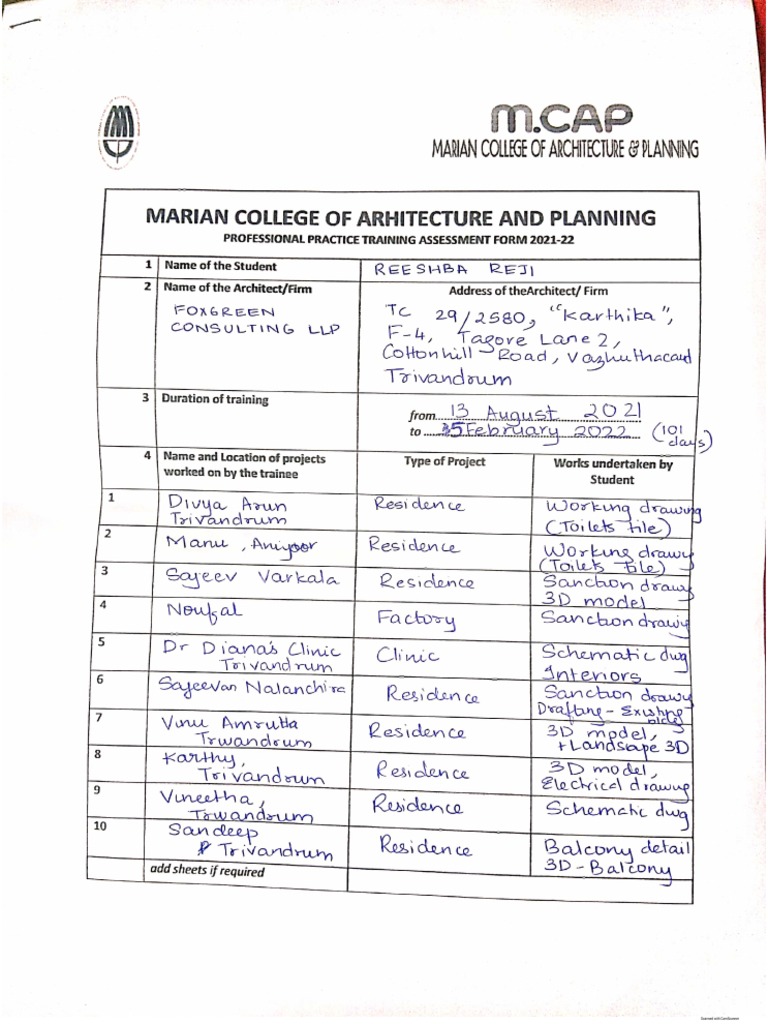 M.CAP
MARIAN COLLEGE OF ARCHITECTURE & PLANNING
MARIAN COLLEGE OF ARHITECTURE AND PLANNING
PROFESSIONAL PRACTICE TRAINING ASSESSMENT FORM 2021-22
1 Name of the Student REESHBA REJI
2 Name of the Architect/Firm Address of theArchitect/ Firm
FOXGREEN
CONSULTING LLP
TC 29/2580, "Karthika",
F-4, Tagore Lane 2,
Cottonhill Road, Vazhuthacaud
Trivandrum
3 Duration of training
from 13 August 2021
to 5 February 2022 (101 days)
4 Name and Location of projects worked on by the trainee Type of Project Works undertaken by Student
1 Divya Arun Trivandrum Residence Working drawing (Toilets tile)
2 Manu, Aniyoor Residence Working drawg (Toilets tile)
3 Sajeev Varkala Residence Sanction drawg 3D model
4 Noufal Factory Sanction drawg
5 Dr Diana's Clinic Trivandrum Clinic Schematic dwg Interiors
6 Sajeevan Nalanchira Residence Sanction drawg Drafting - Existing
7 Vinu Amrutha Trivandrum Residence 3D model, + Landscape 3D
8 Karthy, Trivandrum Residence 3D model, Electrical drawing
9 Vineetha, Trivandrum Residence Schematic dwg
10 Sandeep Trivandrum Residence Balcony detail 3D - Balcony
add sheets if required
Scanned with CamScanner